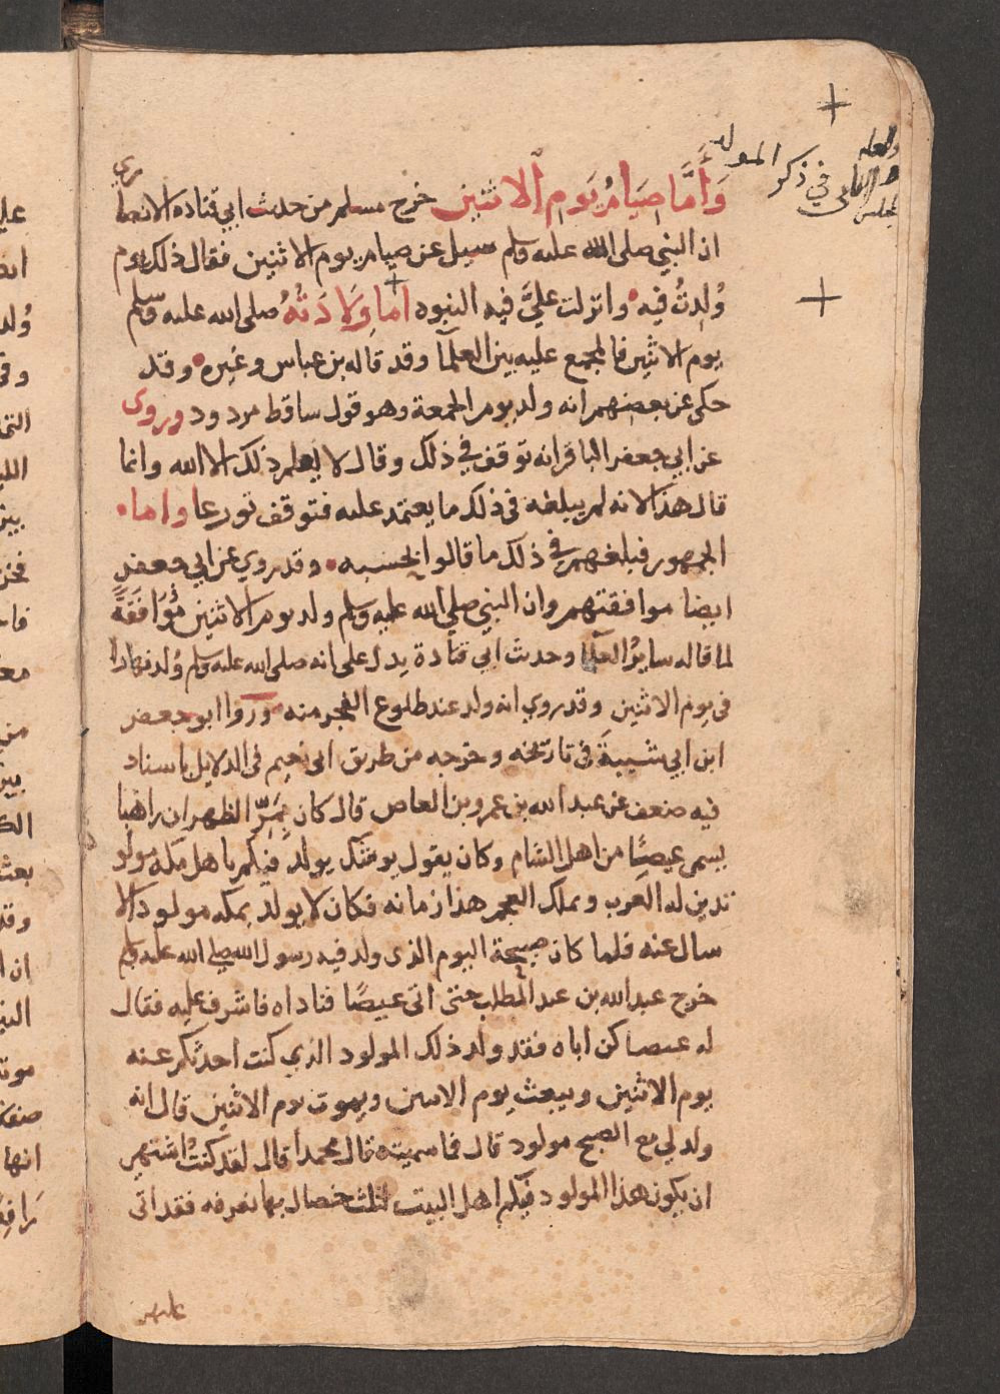 في ذكر المولد
وَأَمَّا صِيَامُ يَوم الاثنين خرج مسلم من حدث ابي قتاده الانصاري
ان النبي صلى الله عليه وسلم سيل عن صيام يوم الاثنين فقال ذلك يوم
وُلِدتُ فيه وانزلت عليَّ فيه النبوه اما وِلَادَتُهُ صلى الله عليه وسلم
يوم الاثنين فالمجمع عليه بين العلمآ وقد قاله بن عباس وغيره وقد
حكى عن بعضهم انه ولد يوم الجمعة وهو قول ساقط مردود وروى
عن ابي جعفر الباقر انه توقف في ذلك وقال لا يعلم ذلك الا الله وانما
قال هذا لانه لم يبلغه في ذلك ما يعتمد عليه فتوقف تورعا واما
الجمهور فبلغهم في ذلك ما قالوا بحسبه وقد روي عن ابي جعفر
ايضا موافقتهم وان النبي صلي الله عليه وسلم ولد يوم الاثنين مُوَافَقَةً
لما قاله سايرُ العلمآ وحدث ابي قتادة يدل على انه صلى الله عليه وسلم وُلد نهارا
في يوم الاثنين وقد روي انه ولد عند طلوع الفجر منه وروا ابو جعفر
ابن ابي شيبةَ في تاريخه وخرجه من طريق ابي نعيم في الدلايل باسناد
فيه ضعف عن عبد الله بن عمرو بن العاص قال كان بِمَرِّ الظهران راهبا
يسمى عيصًا من اهل الشام وكان يقول يوشك يولد فيكم يا هل مكه مولو
تدين له العرب ويملك العجم هذا زمانه فكان لا يولد بمكه مولود الا
سال عنه فلما كان صبيحة اليوم الذى ولد فيه رسول الله صلي الله عليه وسلم
خرج عبد الله بن عبد المطلب حتى اتى عيصًا فناداه فاشرف عليه فقال
له عيصا كن اباه فقد ولد ذلك المولود الذي كنت احدثكم عنه
يوم الاثنين ويبعث يوم الاثنين ويموت يوم الاثنين قال انه
ولد لي مع الصبح مولود قال فما سميته قال محمدا قال لقد كنتُ اشتهي
ان يكون هذا المولود فيكم اهل البيت لثلث خصال بها نعرفه فقد اتى
عليهن